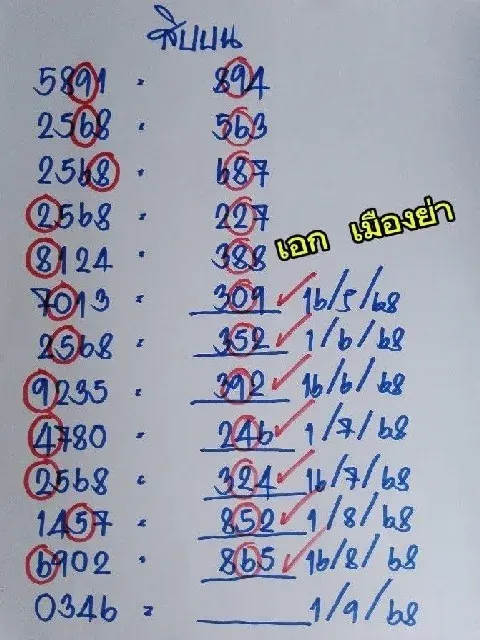 สิบบน
5891 = 894
2568 = 563
2568 = 687
2568 = 227
8124 = 388
เอก เมืองย่า
7013 = 309 ✓ 16/5/68
2568 = 352 ✓ 1/6/68
9235 = 392 ✓ 16/6/68
4780 = 246 ✓ 1/7/68
2568 = 324 ✓ 16/7/68
1457 = 852 ✓ 1/8/68
6902 = 865 ✓ 16/8/68
0346 = ____ 1/9/68